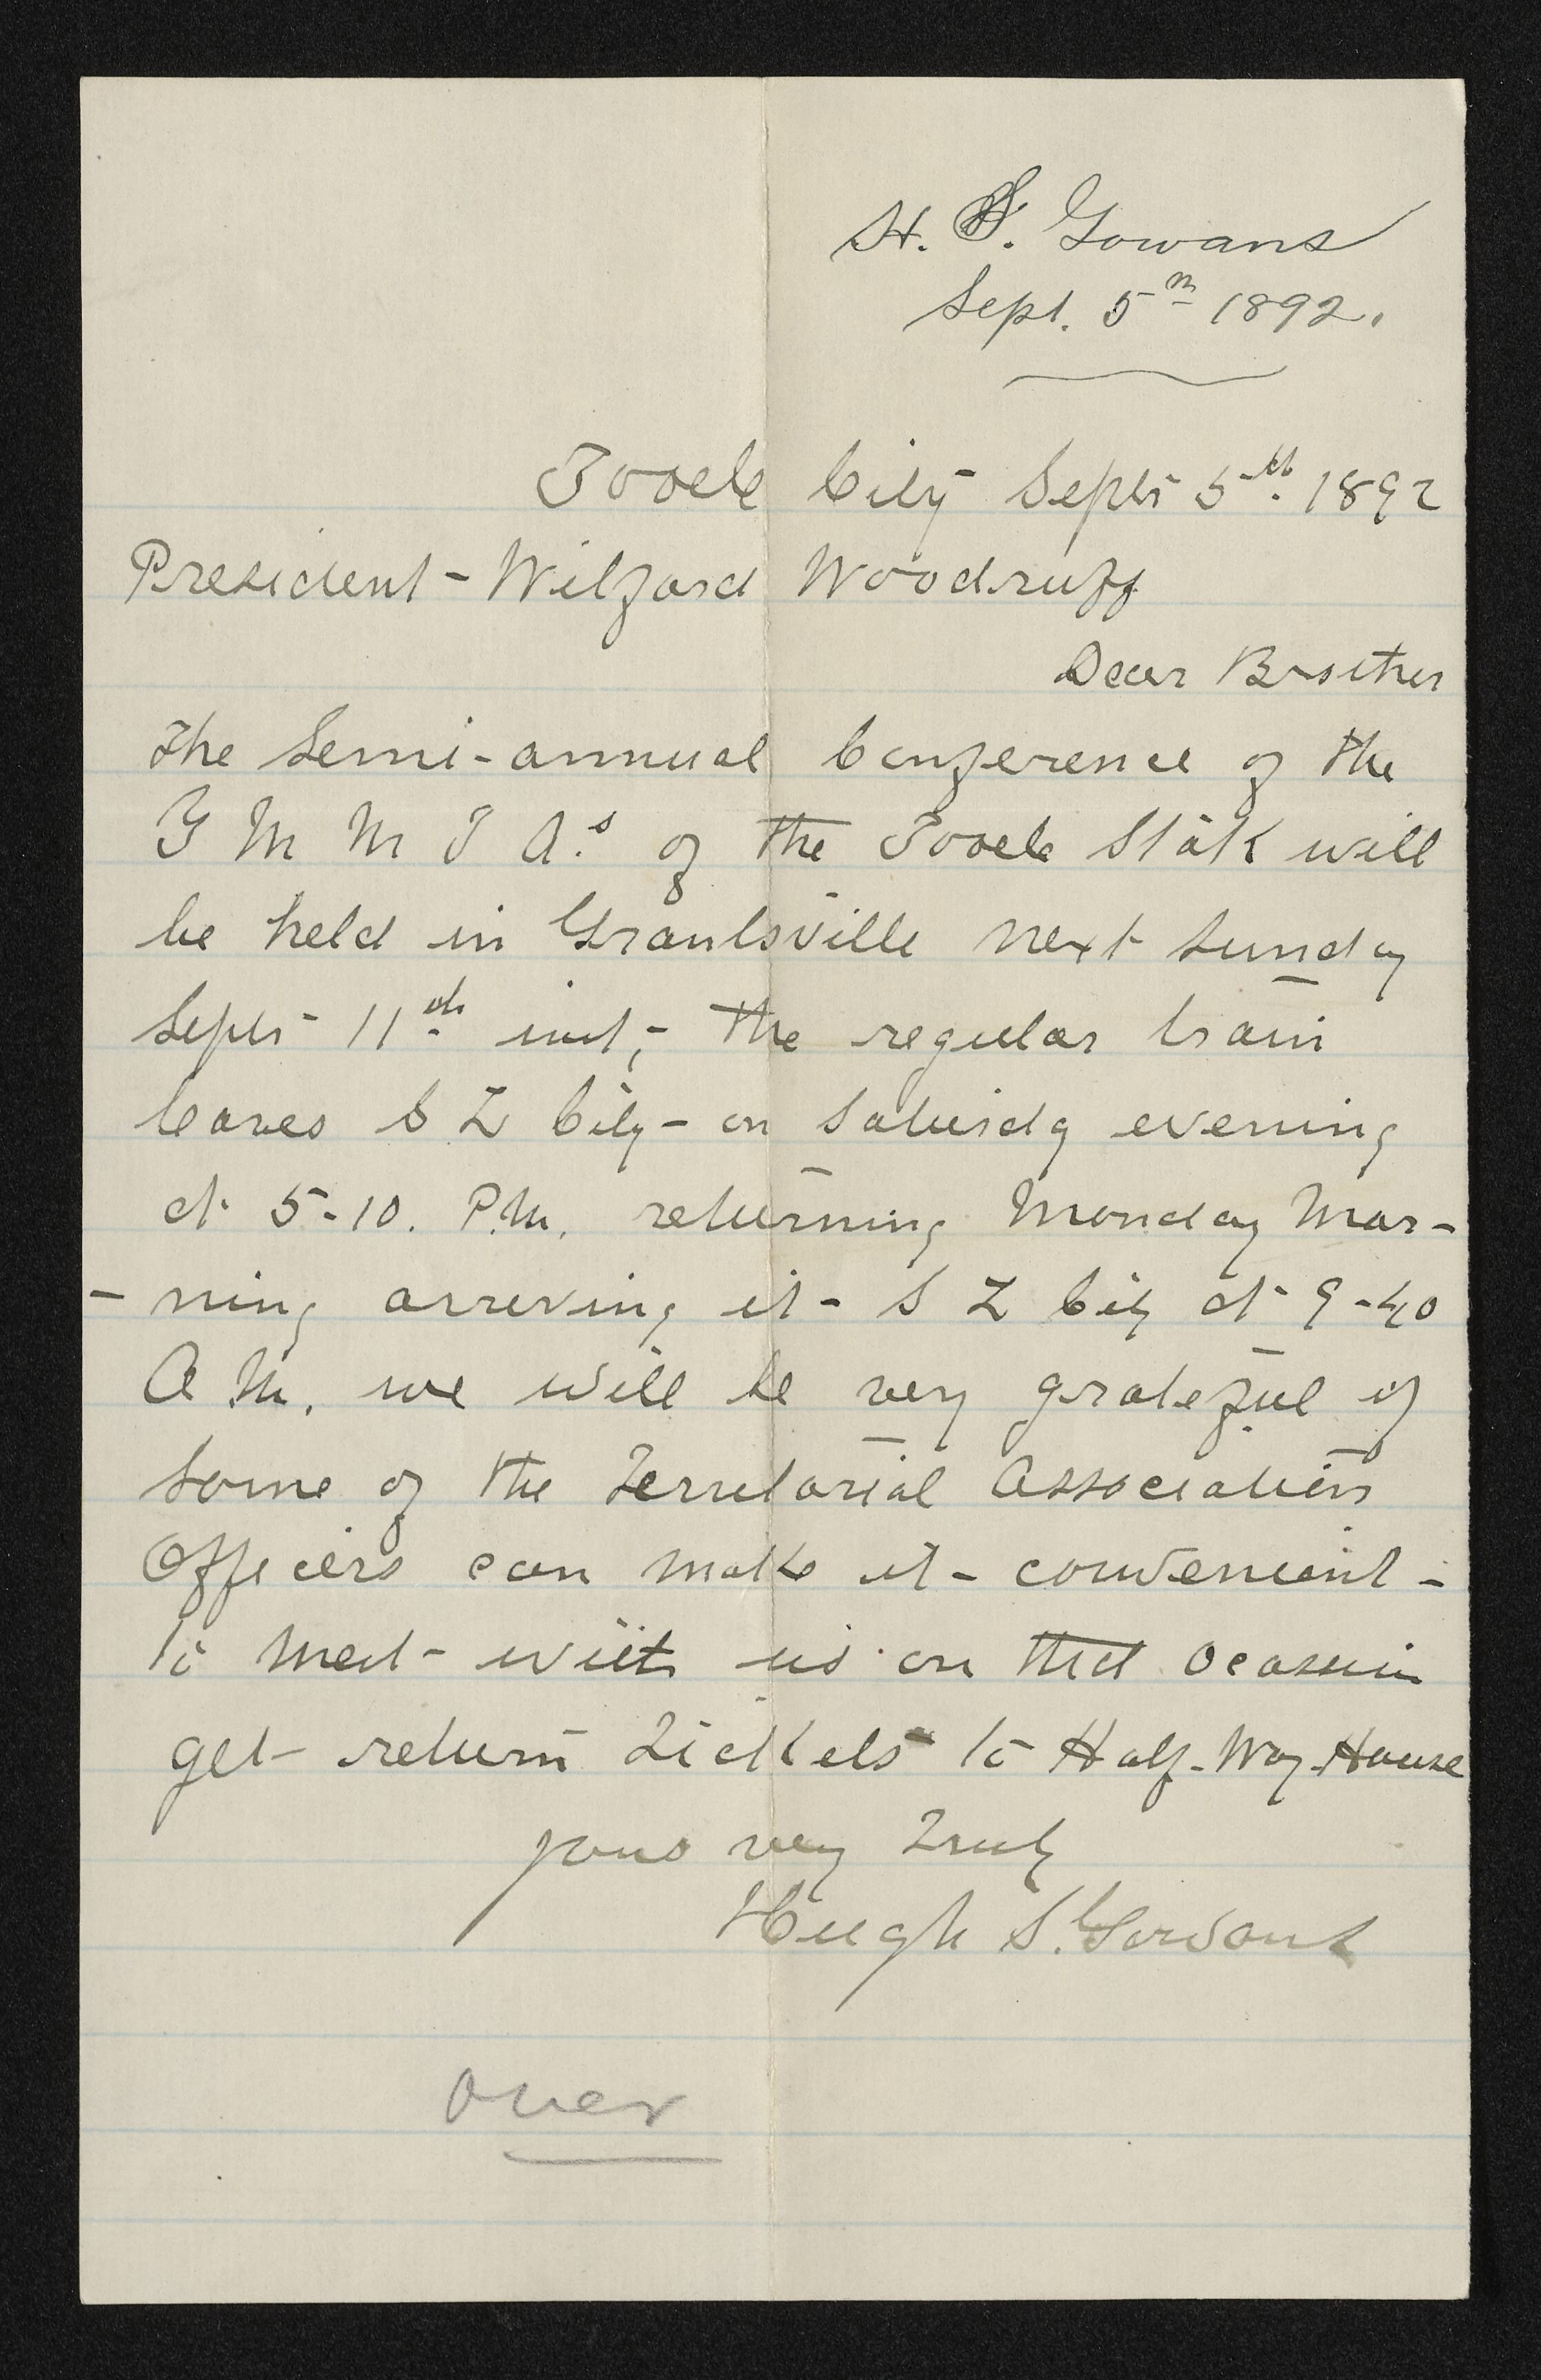 H. S. Gowans
Sept. 5th 1892.
Tooele City Sept 5th. 1892
President Wilford Woodruff
Dear Brother
The Semi-annual Conference of the
Y M M I A.s of the Tooele Stak will
be held in Grantsville next Sunday
Sept 11th inst, the regular train
leaves S L City on Saturdy evening
at 5-10. P.M. returning Monday Mor-
-ning arreving it S L City at 9-40
A M. we will be very grateful if
some of the Terretorial Association
Officers can make it convenient
to meet with us on that ocassion
get return Tickets to Half-Way-House
yous very Truly
Hugh S. Gowans
Over